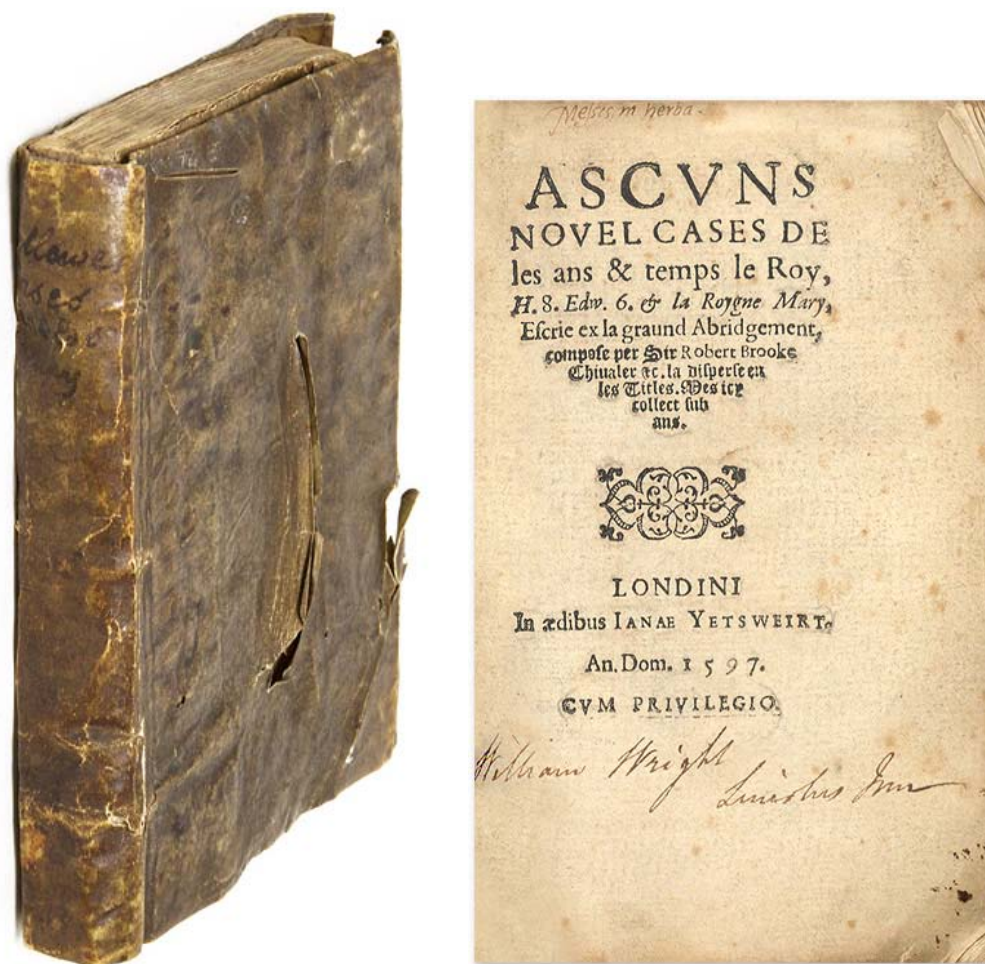 Meſsis in herba.
ASCVNS
NOVEL CASES DE
les ans & temps le Roy,
H. 8. Edw. 6. & la Roygne Mary,
Eſcrie ex la graund Abridgement,
compoſe per Sir Robert Brooke
Chiualer &c. la diſperſe en
les Titles. Mes icy
collect ſub
ans.
LONDINI
In ædibus IANAE YETSWEIRT.
An. Dom. 1597.
CVM PRIVILEGIO.
William Wright
Lincolns Inn